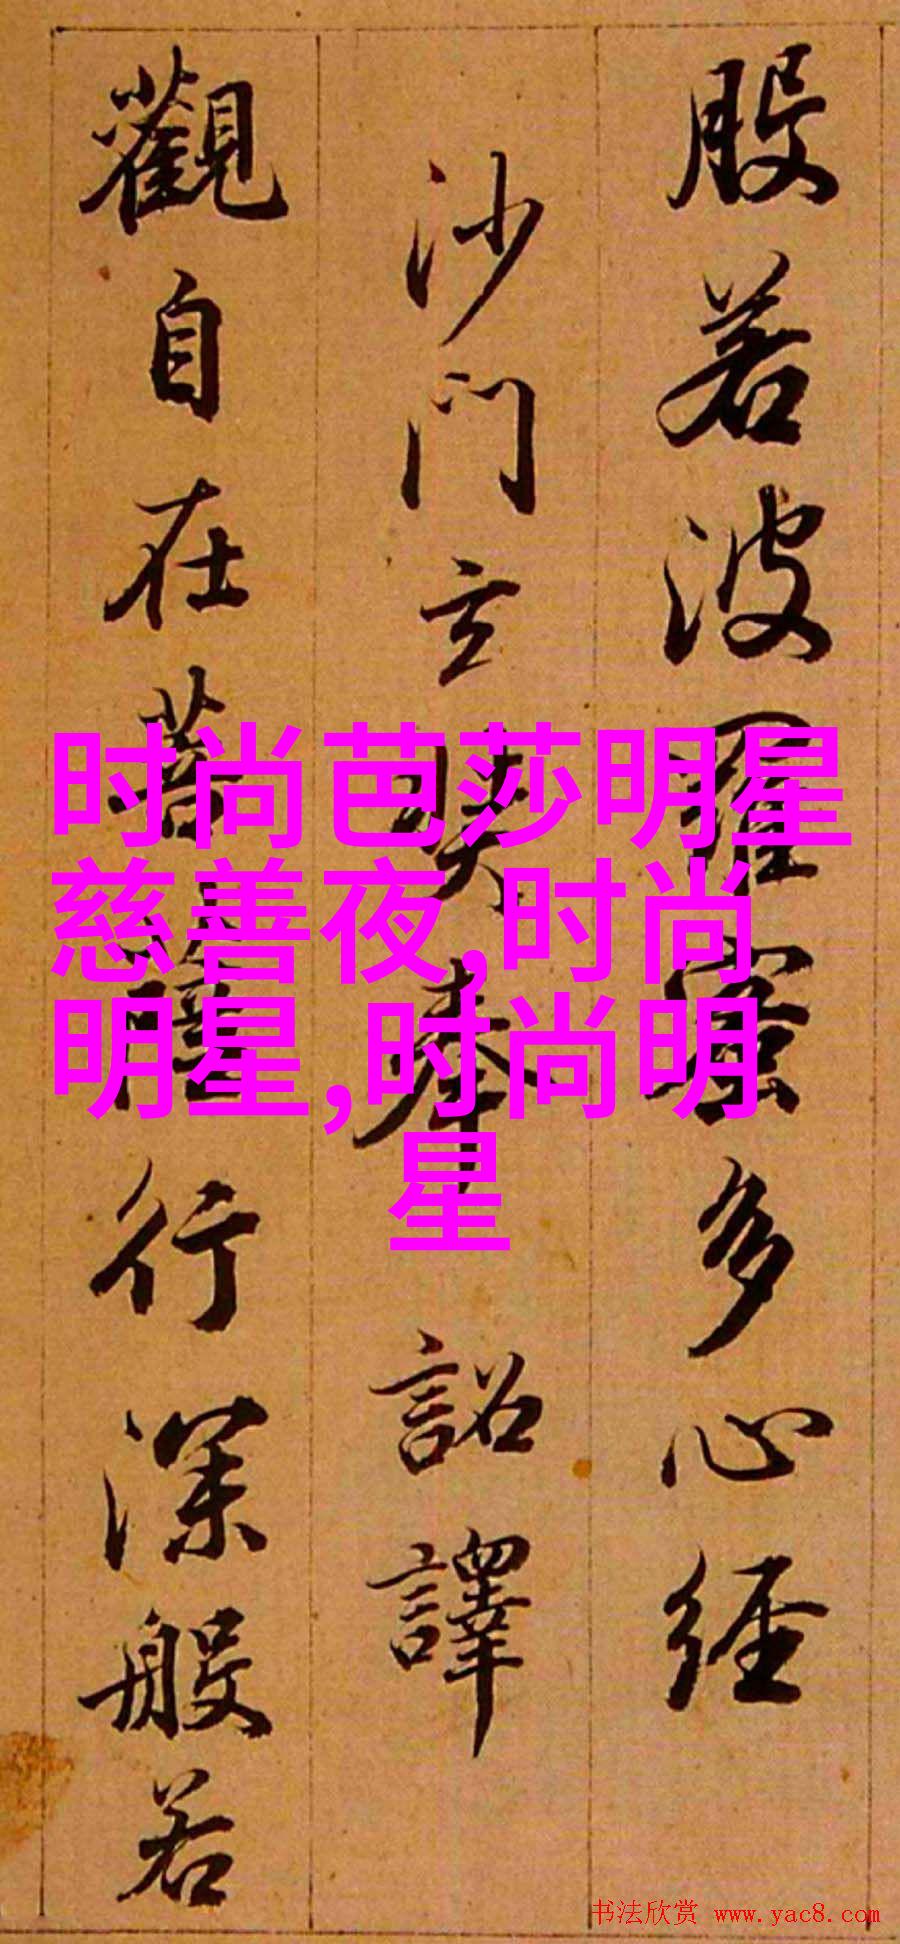 般若波羅蜜多心經
沙門玄奘奉 詔譯
觀自在菩薩行深般若
时尚芭莎明星
慈善夜,时尚
明星,时尚明
星
书法欣赏 www.yac8.com